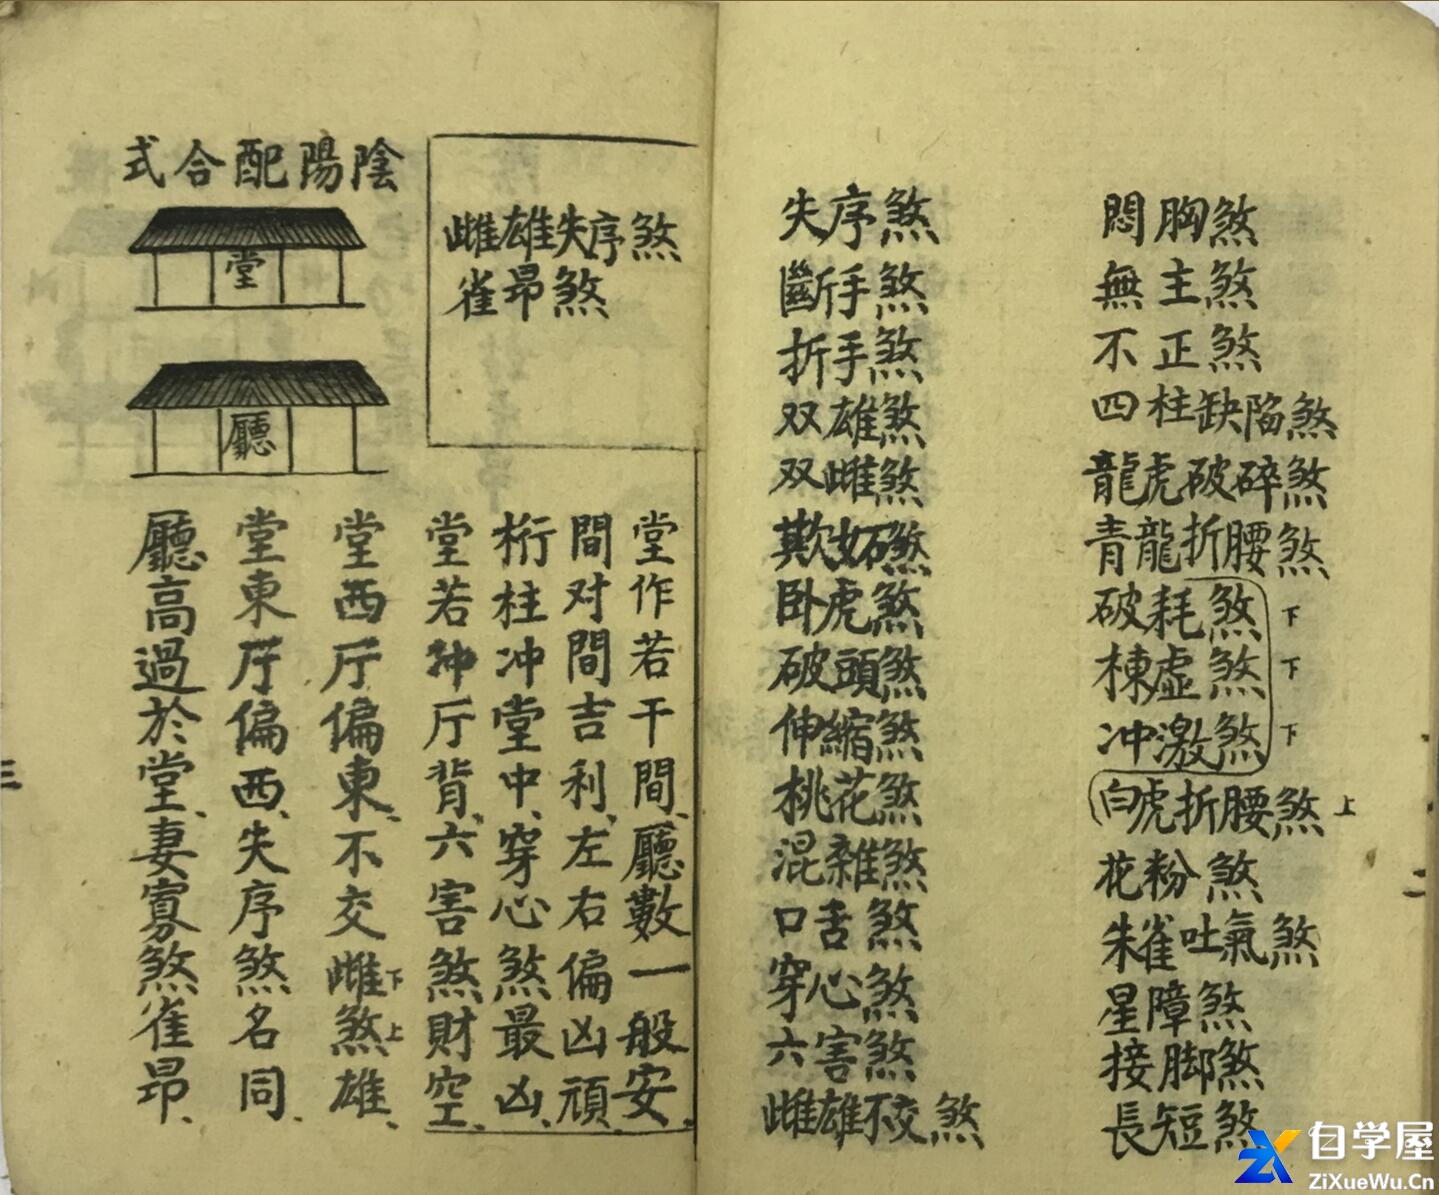 悶胸煞
無主煞
不正煞
四柱缺陷煞
龍虎破碎煞
青龍折腰煞
破耗煞 下
棟虛煞 下
冲激煞 下
白虎折腰煞 上
花粉煞
朱雀吐氣煞
星障煞
接脚煞
長短煞
失序煞
斷手煞
折手煞
双雄煞
双雌煞
欺
卧虎煞
破頭煞
伸縮煞
桃花煞
混雜煞
口舌煞
穿心煞
六害煞
雌雄不交煞
雌雄失序煞
雀昂煞
堂作若干間、廳數一般安、
間对間吉利、左右偏凶頑、
桁柱冲堂中、穿心煞最凶、
堂若厅背、六害煞財空、
堂西厅偏東、不交雌下煞上雄、
堂東厅偏西、失序煞名同、
廳高過於堂、妻寡煞雀昂、
陰陽配合式
堂
廳
三
自学屋
ZiXueWu.Cn